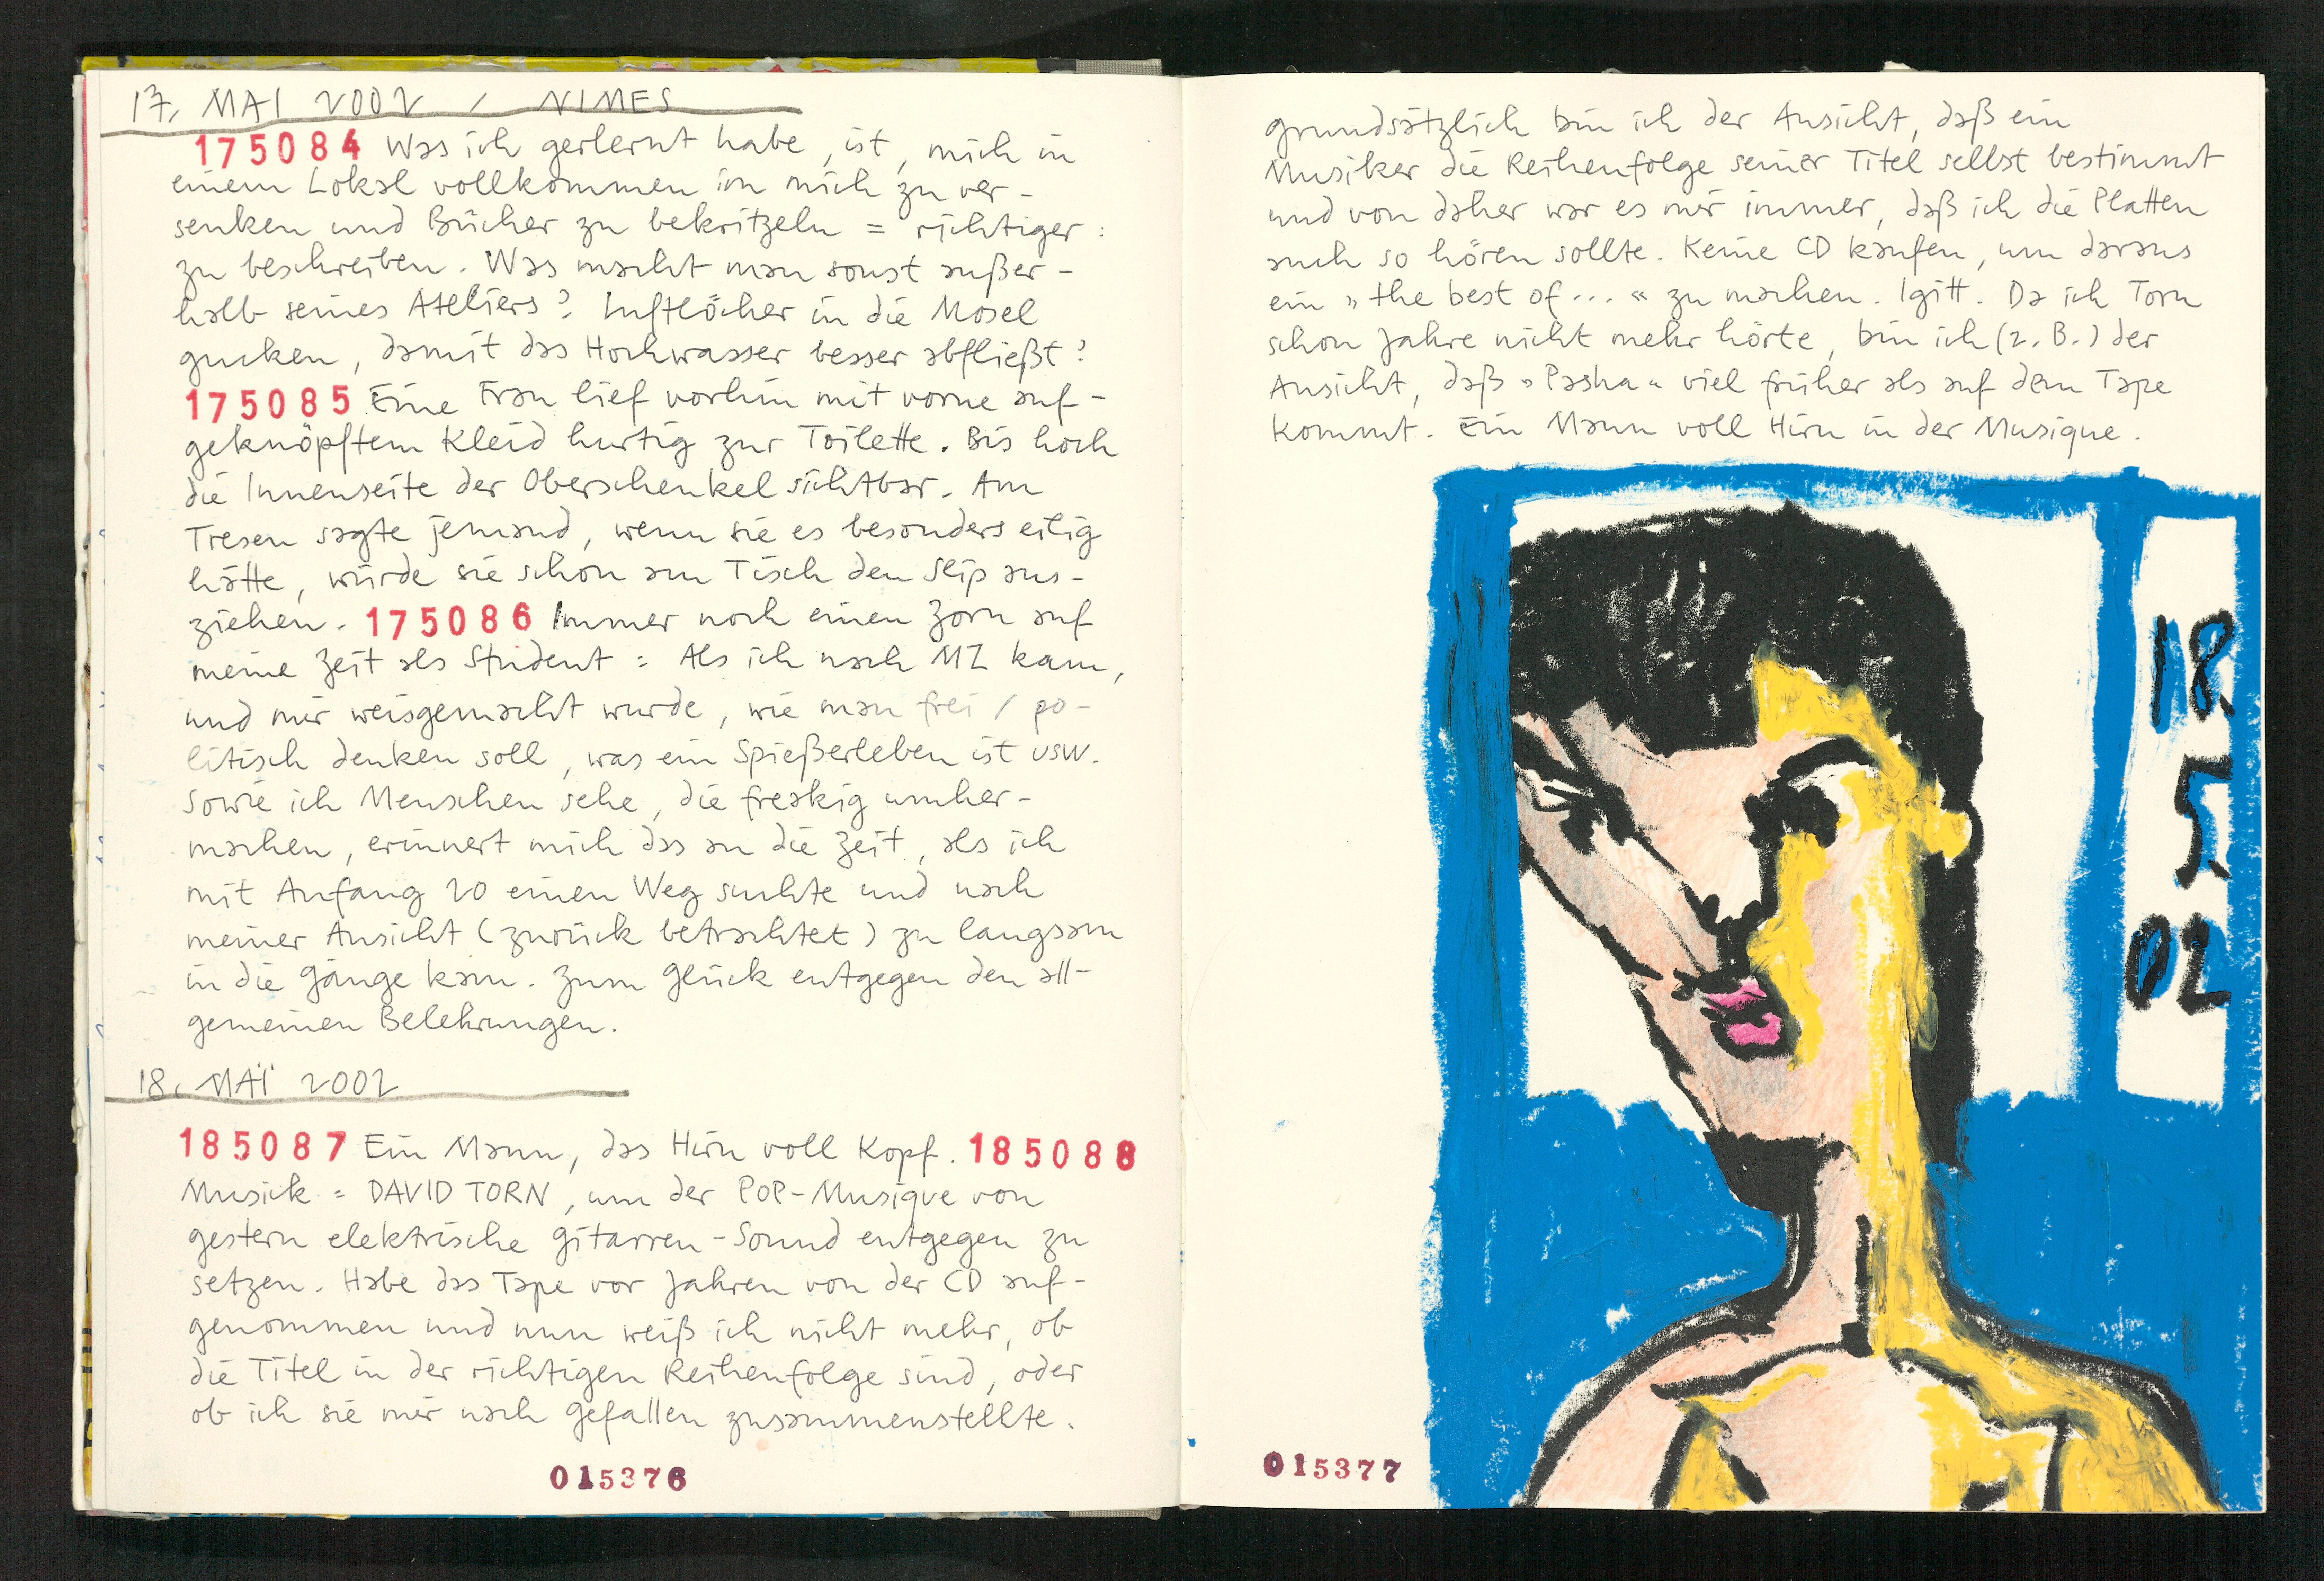 17. MAI 2002 / NIMES
175084 Was ich gerlernt habe, ist, mich in
einem Lokal vollkommen in mich zu ver-
senken und Bücher zu bekritzeln = richtiger:
zu beschreiben. Was macht man sonst außer-
halb seines Ateliers? Luftlöcher in die Mosel
gucken, damit das Hochwasser besser abfließt?
175085 Eine Frau lief vorhin mit vorne auf-
geknöpftem Kleid hurtig zur Toilette. Bis hoch
die Innenseite der Oberschenkel sichtbar. Am
Tresen sagte jemand, wenn sie es besonders eilig
hätte, würde sie schon am Tisch den Slip aus-
ziehen. 175086 Immer noch einen Zorn auf
meine Zeit als Student = Als ich nach MZ kam,
und mir weisgemacht wurde, wie man frei / po-
litisch denken soll, was ein Spießerleben ist usw.
Sowie ich Menschen sehe, die freakig umher-
machen, erinnert mich das an die Zeit, als ich
mit Anfang 20 einen Weg suchte und nach
meiner Ansicht (zurück betrachtet) zu langsam
in die Gänge kam. Zum Glück entgegen den all-
gemeinen Belehrungen.
18. MAI 2002
185087 Ein Mann, das Hirn voll Kopf. 185088
Musick = DAVID TORN, um der POP-Musique von
gestern elektrische Gitarren-Sound entgegen zu
setzen. Habe das Tape vor Jahren von der CD auf-
genommen und nun weiß ich nicht mehr, ob
die Titel in der richtigen Reihenfolge sind, oder
ob ich sie mir nach Gefallen zusammenstellte.
015376
grundsätzlich bin ich der Ansicht, daß ein
Musiker die Reihenfolge seiner Titel selbst bestimmt
und von daher war es mir immer, daß ich die Platten
auch so hören sollte. Keine CD kaufen, um daraus
ein »the best of...« zu machen. Igitt. Da ich Torn
schon Jahre nicht mehr hörte, bin ich (z.B.) der
Ansicht, daß »Pasha« viel früher als auf dem Tape
kommt. Ein Mann voll Hirn in der Musique.
18.
5.
02
015377